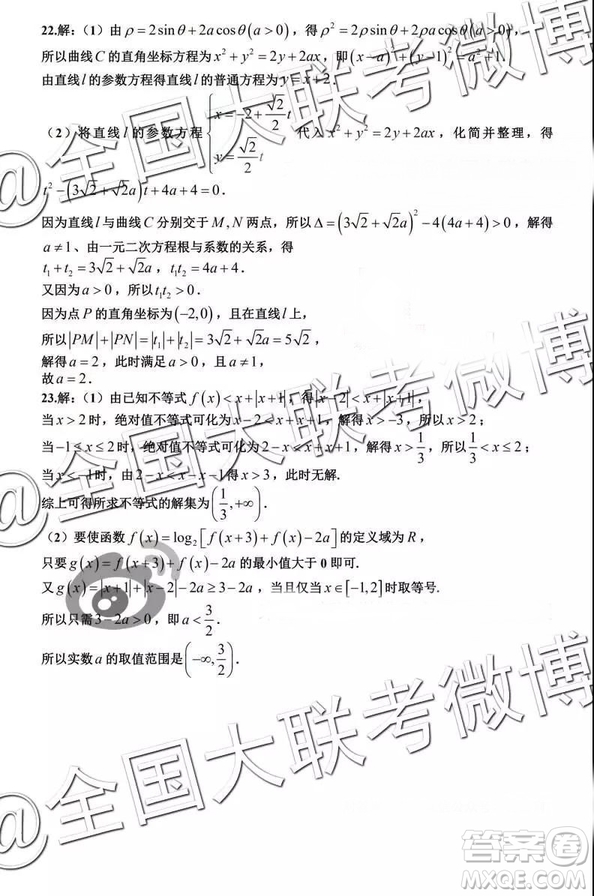 22.解:(1)由ρ=2sinθ+2acosθ(a>0),得ρ²=2ρsinθ+2ρacosθ(a>0),
所以曲线C的直角坐标方程为x²+y²=2y+2ax,即(x-a)²+(y-1)²=a²+1.
由直线l的参数方程得直线l的普通方程为y=x+2.
(2)将直线l的参数方程{x=-2+√2/2 t, y=√2/2 t 代入x²+y²=2y+2ax,化简并整理,得
t²-(3√2+√2a)t+4a+4=0.
因为直线l与曲线C分别交于M,N两点,所以Δ=(3√2+√2a)²-4(4a+4)>0,解得
a≠1、由一元二次方程根与系数的关系,得
t₁+t₂=3√2+√2a,t₁t₂=4a+4.
又因为a>0,所以t₁t₂>0.
因为点P的直角坐标为(-2,0),且在直线l上,
所以|PM|+|PN|=|t₁|+|t₂|=3√2+√2a=5√2,
解得a=2,此时满足a>0,且a≠1,
故a=2.
23.解:(1)由已知不等式f(x)<x+|x+1|,得|x-2|<x+|x+1|,
当x>2时,绝对值不等式可化为x-2<x+x+1,解得x>-3,所以x>2;
当-1≤x≤2时,绝对值不等式可化为2-x<x+x+1,解得x>1/3,所以1/3<x≤2;
当x<-1时,由2-x<x-x-1得x>3,此时无解.
综上可得所求不等式的解集为(1/3,+∞).
(2)要使函数f(x)=log₂[f(x+3)+f(x)-2a]的定义域为R,
只要g(x)=f(x+3)+f(x)-2a的最小值大于0即可.
又g(x)=|x+1|+|x-2|-2a≥3-2a,当且仅当x∈[-1,2]时取等号.
所以只需3-2a>0,即a<3/2.
所以实数a的取值范围是(-∞,3/2).
@全国大联考微博
@全国大联考微博
@全国大联考微博
答案卷
MXQE.COM